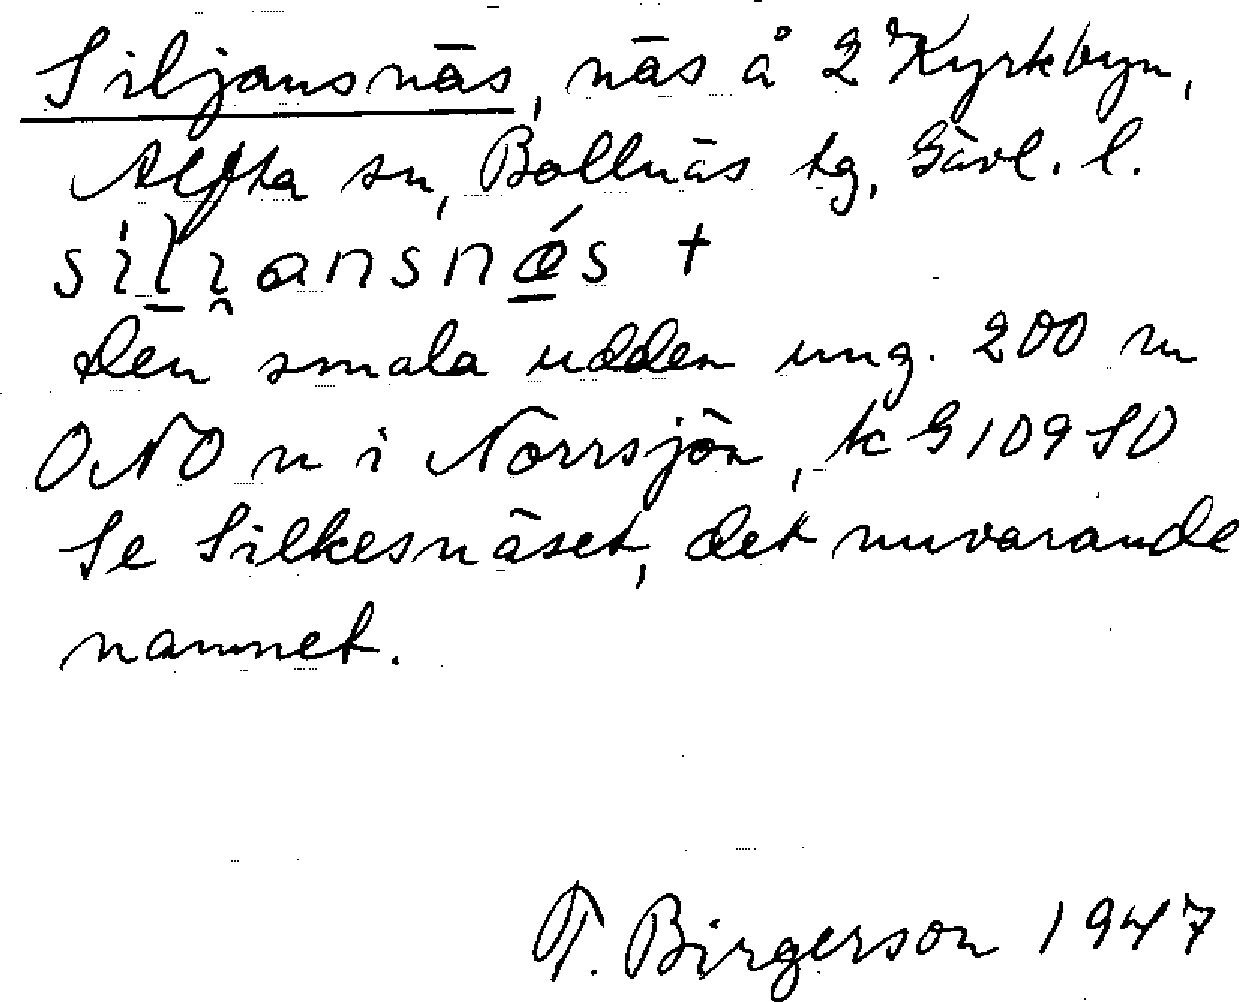 Siljansnäs, näs å 2 Kyrkbyn,
Alfta sn, Bollnäs tg, Gävl. l.
sìli̯ansnǽs +
den smala udden ung. 200 m
ONO n i Norrsjön, k G 109 SO
Se Silkesnäset, det nuvarande
namnet.
T. Birgerson 1947